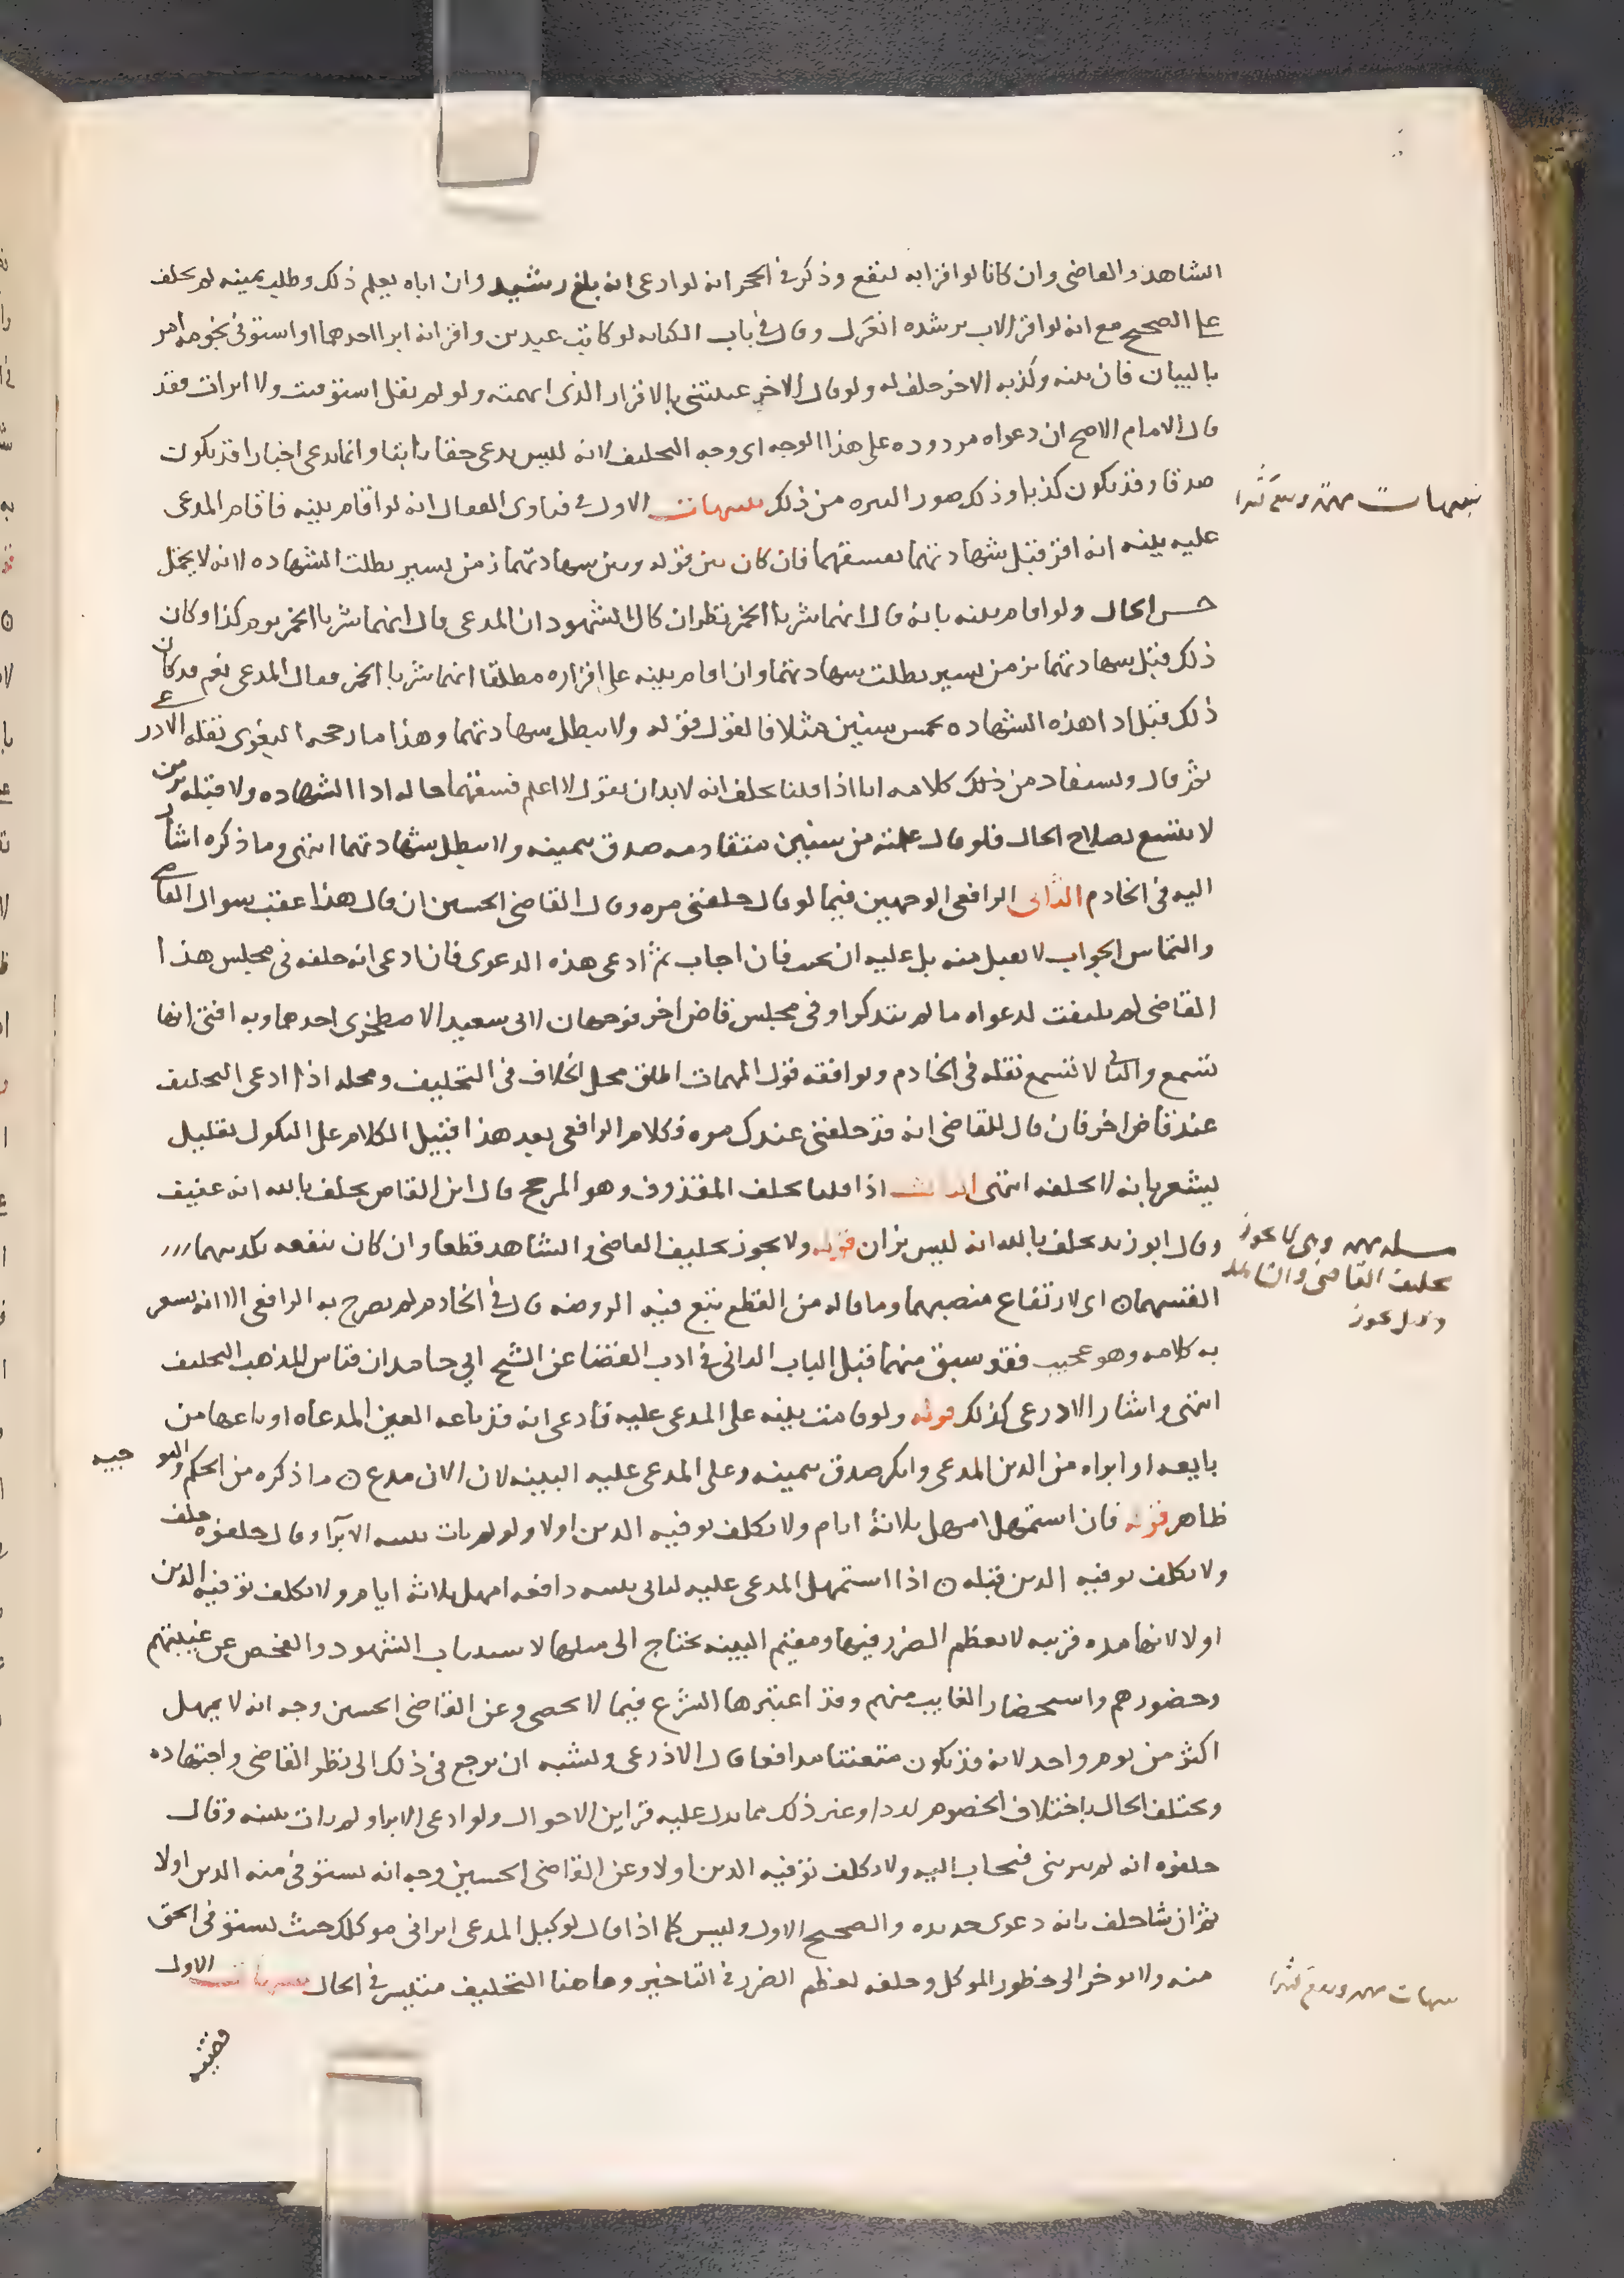 الشاهد والقاضي وان كانا لو اقرا به لنفع وذكر في الحجر انه لو ادعى انه بلغ رشيد وان اباه يعلم ذلك وطلب يمينه لم يحلف
على الصحيح مع انه لو اقر الاب برشده انعزل وقال في باب الكتابه لو كاتب عبدين واقر انه ابرا احدهما او استوفى نجومه امر
بالبيان فان بينه وكذبه الاخر حلف له ولو قال الاخر عينتني بالاقرار الذي ابهمته ولو لم تقل استوفيت ولا ابرات فقد
قال الامام الاصح ان دعواه مردوده على هذا الوجه اي وجه التحليف لانه ليس يدعي حقا ثابتا وانما يدعي اخبارا قد يكون
صدقا وقد يكون كذبا وذلك صور من ذلك تنبيهات الاول في فتاوى القفال انه لو اقام بينه فاقام المدعى
عليه بينه انه اقر قبل شهادتهما بفسقهما فان كان بين قوله وبين شهادتهما زمن يسير بطلت الشهاده لانه لا يحتمل
حسن الحال ولو اقام بينه بانه قال انهما شربا الخمر نظر ان كان الشهود ان المدعي قال انهما شربا الخمر يوم كذا وكان
ذلك قبل شهادتهما بزمن يسير بطلت شهادتهما وان اقام بينه على اقراره مطلقا انهما شربا الخمر فقال المدعي نعم قد كان
ذلك قبل ادا هذه الشهاده بخمس سنين مثلا فالقول قوله ولا يبطل شهادتهما وهذا ما رجحه البغوي نقله الادرعي
ثم قال ويستفاد من ذلك كلامه انا اذا قلنا يحلف انه لابد ان يقول لا اعلم فسقهما حاله ادا الشهاده ولا قبله بزمن
لا يتسع لصلاح الحال فلو قال علمته من سنين متقادمه صدق بيمينه ولا يبطل شهادتهما انتهى وما ذكره اشار
اليه في الخادم الثاني الرافعي الوجهين فيما لو قال حلفني مره وقال القاضي الحسين ان قال هذا عقب سوال القاضي
والتماس الجواب لا يقبل منه بل عليه ان يجيب فان اجاب ثم ادعى هذه الدعوى فان ادعى انه حلفه في مجلس هذا
القاضي لم يلتفت لدعواه ما لم يتذكر او في مجلس قاض اخر فوجهان لابي سعيد الاصطخري احدهما وبه افتى انها
تسمع والثاني لا تسمع نقله في الخادم ويوافقه قول المهمات اطلق محل الخلاف في التحليف ومحله اذا ادعى التحليف
عند قاض اخر فان قال للقاضي انه قد حلفني عندك مره فكلام الرافعي بعد هذا قبيل الكلام على النكول بقليل
يشعر بانه لا يحلفه انتهى الثالث اذا قلنا يحلف المقذوف وهو المرجح قال ابن القاص يحلف بالله انه عفيف
وقال ابو زيد يحلف بالله انه ليس بزان قوله ولا يجوز تحليف القاضي والشاهد قطعا وان كان ينفعه تكذيبهما
انفسهما ن اي لارتفاع منصبهما وما قاله من القطع تبع فيه الروضه قال في الخادم لم يصرح به الرافعي الا انه يشعر
به كلامه وهو عجيب فقد سبق منهما قبل الباب الثاني في ادب القضا عن الشيخ ابي حامد ان قياس المذهب التحليف
انتهى واشار الادرعي كذلك قوله ولو قامت بينه على المدعى عليه فادعى انه قد باعه العين المدعاه او باعها من
بايعه او ابراه من الدين المدعى وانكر صدق بيمينه وعلى المدعى عليه البينه لان الان مدع ن ما ذكره من الحكم والتوجيه
ظاهر قوله فان استمهل امهل ثلاثة ايام ولا يكلف توفيه الدين اولا ولو لم يات ببينه الابرا وقال حلفوه حلف
ولا يكلف توفيه الدين قبله ن اذا استمهل المدعى عليه لياتي ببينه دافعه امهل ثلاثه ايام ولا يكلف توفيه الدين
اولا لانها مده قريبه لا يعظم الضرر فيها ومقيم البينه يحتاج الى مثلها الشهود والفحص عن غيبتهم
وحضورهم واستحضار الغايب منهم وقد اعتبرها الشرع فيما لا يحصى وعن القاضي الحسين وجه انه لا يمهل
اكثر من يوم واحد لانه قد يكون متعنتا مدافعا قال الاذرعي ويشبه ان يرجع في ذلك الى نظر القاضي واجتهاده
ويختلف الحال باختلاف الخصوم لددا وغير ذلك مما يدل عليه قراين الاحوال ولو ادعى الابرا ولم يات ببينه وقال
حلفوه انه لم يبرني فيجاب اليه ولا يكلف توفيه الدين اولا وعن القاضي الحسين وجه انه يستوفي منه الدين اولا
ثم ان شا حلف بانه دعوى جديده والصحيح الاول وليس كما اذا قال لوكيل المدعي ابراني موكلك حيث يستوفي الحق
منه ولا يوخر الى حظور الموكل وحلفه لعظم الضرر في التاخير وها هنا التحليف متيسر في الحال تنبيهات الاول
تنبيهات مهمة وتقع كثيرا
مسله مهمه وهي لا يجوز
تحليف القاضي والشاهد
وقيل يجوز
تنبيهات مهمه وتقع كثيرا
قضيه